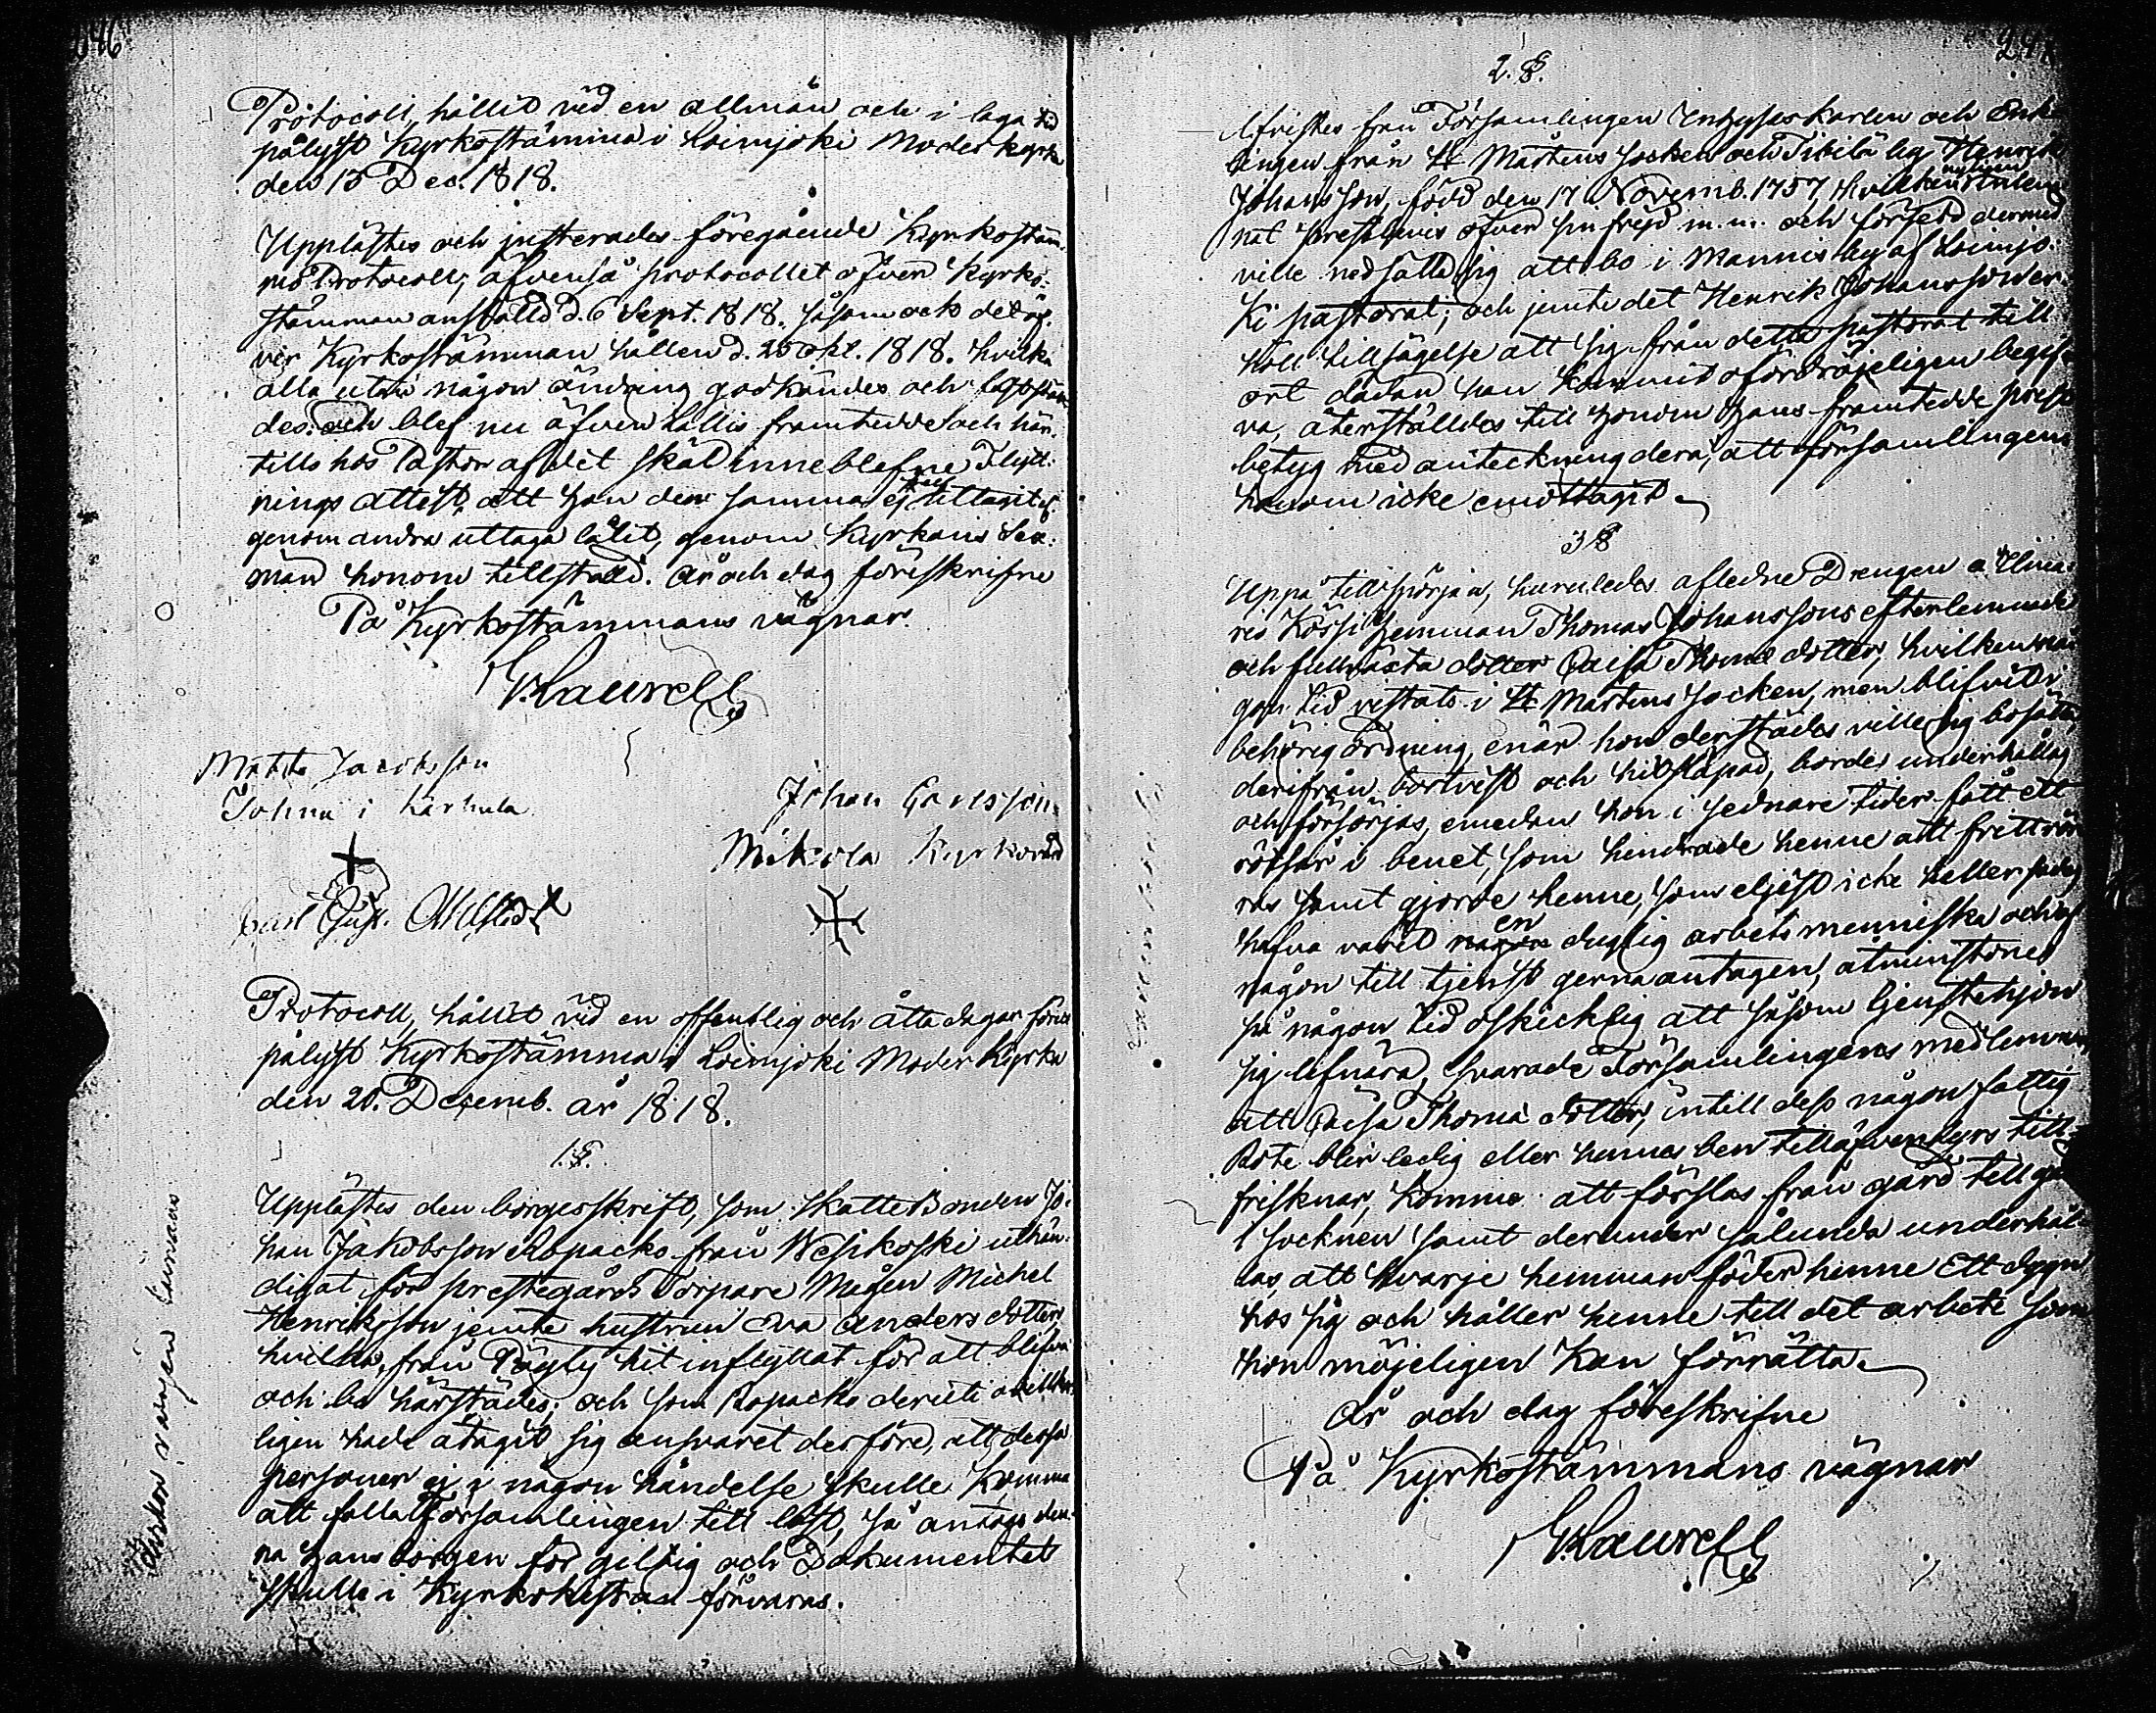 Protocoll, hållit vid en allmän och i laga tid
pålyst Kyrkostämma i Loimjoki Moderkyrka
den 13 Dec. 1818.
Upplästes och justerades föregående Kyrkostäm-
mo Protocoll, äfvenså protocollet öfver Kyrko-
stämman anställd d. 6 Sept. 1818. såsom ock det öf-
ver Kyrkostämman hållen d. 25 Okt. 1818. hvilka
alla utan någon ändring godkändes och
des. Och blef nu äfven Kallis framtedde och här-
tills hos Pastor af det skäl inneblefne Flytt-
nings attest, att han den samma ej sjelf eller
genom andra uttaga låtit, genom Kyrkans Sex-
män honom tillställd. År och dag föreskrifne
På Kyrkostämmans vägnar.
G. Laurell
Matts Jacobsson
Johan i Karhula
Johan Carlsson
Mikola Kyrkovärd
Carl Gust.
Protocoll, hållit vid en offentlig och åtta dagar förut
pålyst Kyrkostämma i Loimjoki Moder Kyrka
den 20. Decemb. år 1818.
1. §.
Upplästes den borgesskrift, som SkatteBonden Jo-
han Jakobsson Ropacko från Wesikoski uthän-
digat för prestegårds Torpare Mågen Michel
Henriksson jemte hustrun Eva Anders dotter,
hvilka, från Pöyty hit inflyttat för att blifva
och bo härstädes; och som Ropacko deruti
ligen hade åtagit sig ansvaret derföre, att dessa
personer ej i någon händelse skulle komma
att falla Församlingen till last, så antogs den-
na hans borgen för giltig och Dokumentet
skulle i Kyrkokistan förvaras.
247
2. §.
Afvistes från Församlingen Enhyseskarlen och Enk-
lingen från St Mårtens Socken och Tikilä by Henrik
Johansson, född den 17 Novemb. 1757, hvilken
nat prestbevis öfver sin frejd m.m. och försedd dermed
ville nedsätta sig att bo i Mannis by af Loimjo-
ki pastorat; och jemte det Henrik Johansson er-
höll tillsägelse att sig från detta pastorat till
ort dädan han kommit ofördröjeligen begif-
va, återställdes till honom hans framtedde prest-
betyg med anteckning derå, att församlingen
honom icke emottagit.
3 §
Uppå tillspörjan, huruledes aflidne Drengen
Kössi Hemman Thomas Johanssons efterlemnade
och fullväxta dotter Caisa Thomä dotter, hvilken nå-
gon tid vistats i St Mårtens Socken, men blifvit i
behörig ordning, enär hon derstädes ville sig bosätta,
derifrån bortvist och hitskapad, bordes underhållas
och försörjas, emedan hon i sednare tider fått ett
rötsår i benet, som hindrade henne att fritt rör-
ras samt gjorde henne, som eljest icke heller
hafva varit en duglig arbetsmenniska och af
någon till tjenst gerna antagen, åtminstone
på någon tid oskicklig att såsom tjenstehjon
sig lifnära, svarade Församlingens medlemmar,
att Caisa Thomä dotter, intill dess någon fattig
Rote blir ledig eller hennes ben tilläfventyrs till-
frisknar, komme att förslas från gård till gård
i Socknen samt derunder sålunda underhål-
las, att hvarje hemman föder henne Ett dygn
hos sig och håller henne till det arbete som
hon möjeligen kan förrätta.
År och dag föreskrifne
På Kyrkostämmans vägnar
G. Laurell